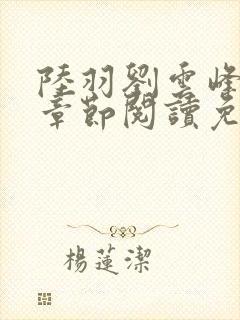 陸羽劉雲峰
章節閱讀免
楊蓮潔